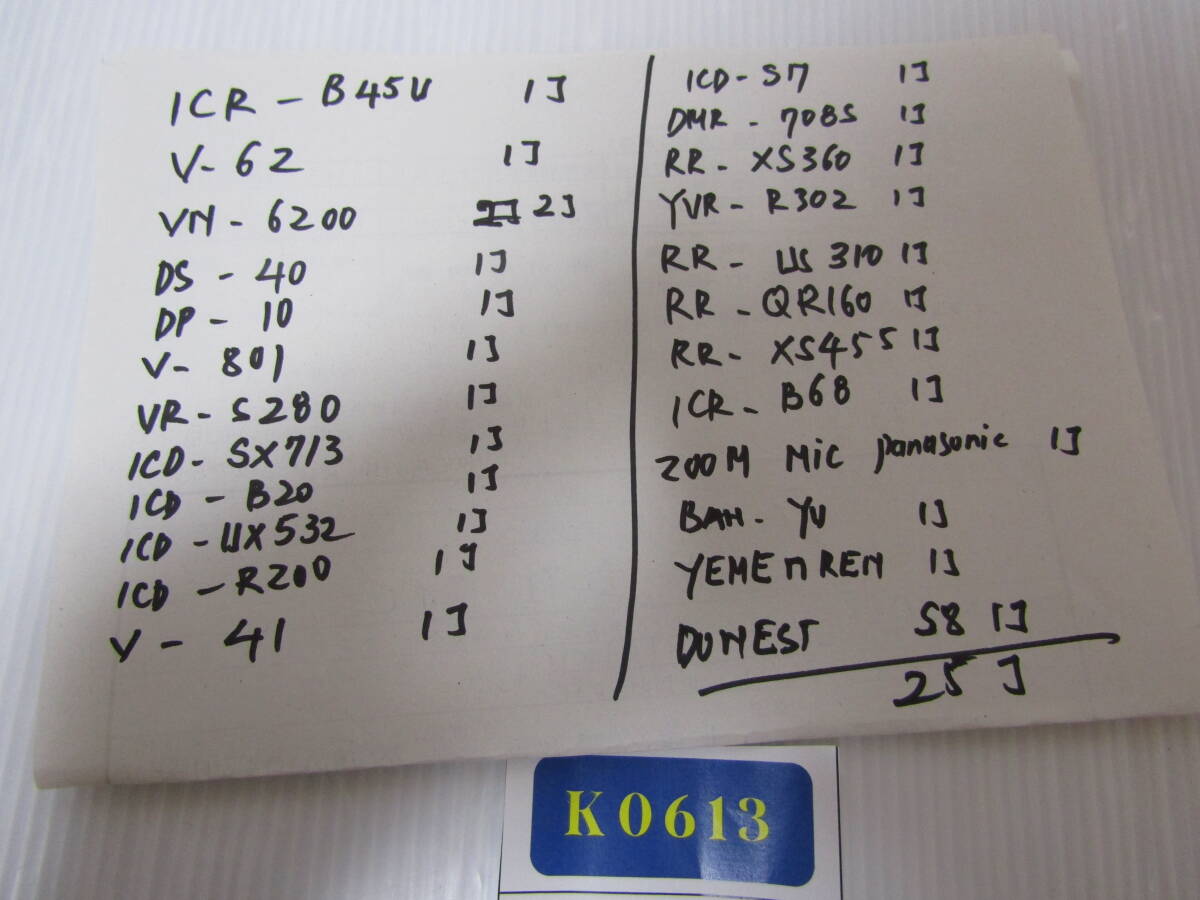 ICR - B45V 1コ
V - 62 1コ
VN - 6200 2コ
DS - 40 1コ
DP - 10 1コ
V - 801 1コ
VR - S280 1コ
ICD - SX713 1コ
ICD - B20 1コ
ICD - UX532 1コ
ICD - R200 1コ
V - 41 1コ
ICD - S7 1コ
DMR - 708S 1コ
RR - XS360 1コ
YVR - R302 1コ
RR - US310 1コ
RR - QR160 1コ
RR - XS455 1コ
ICR - B68 1コ
ZOOM MIC Panasonic 1コ
BAN - YU 1コ
YEMENREN 1コ
DONEST S8 1コ
25コ
K0613